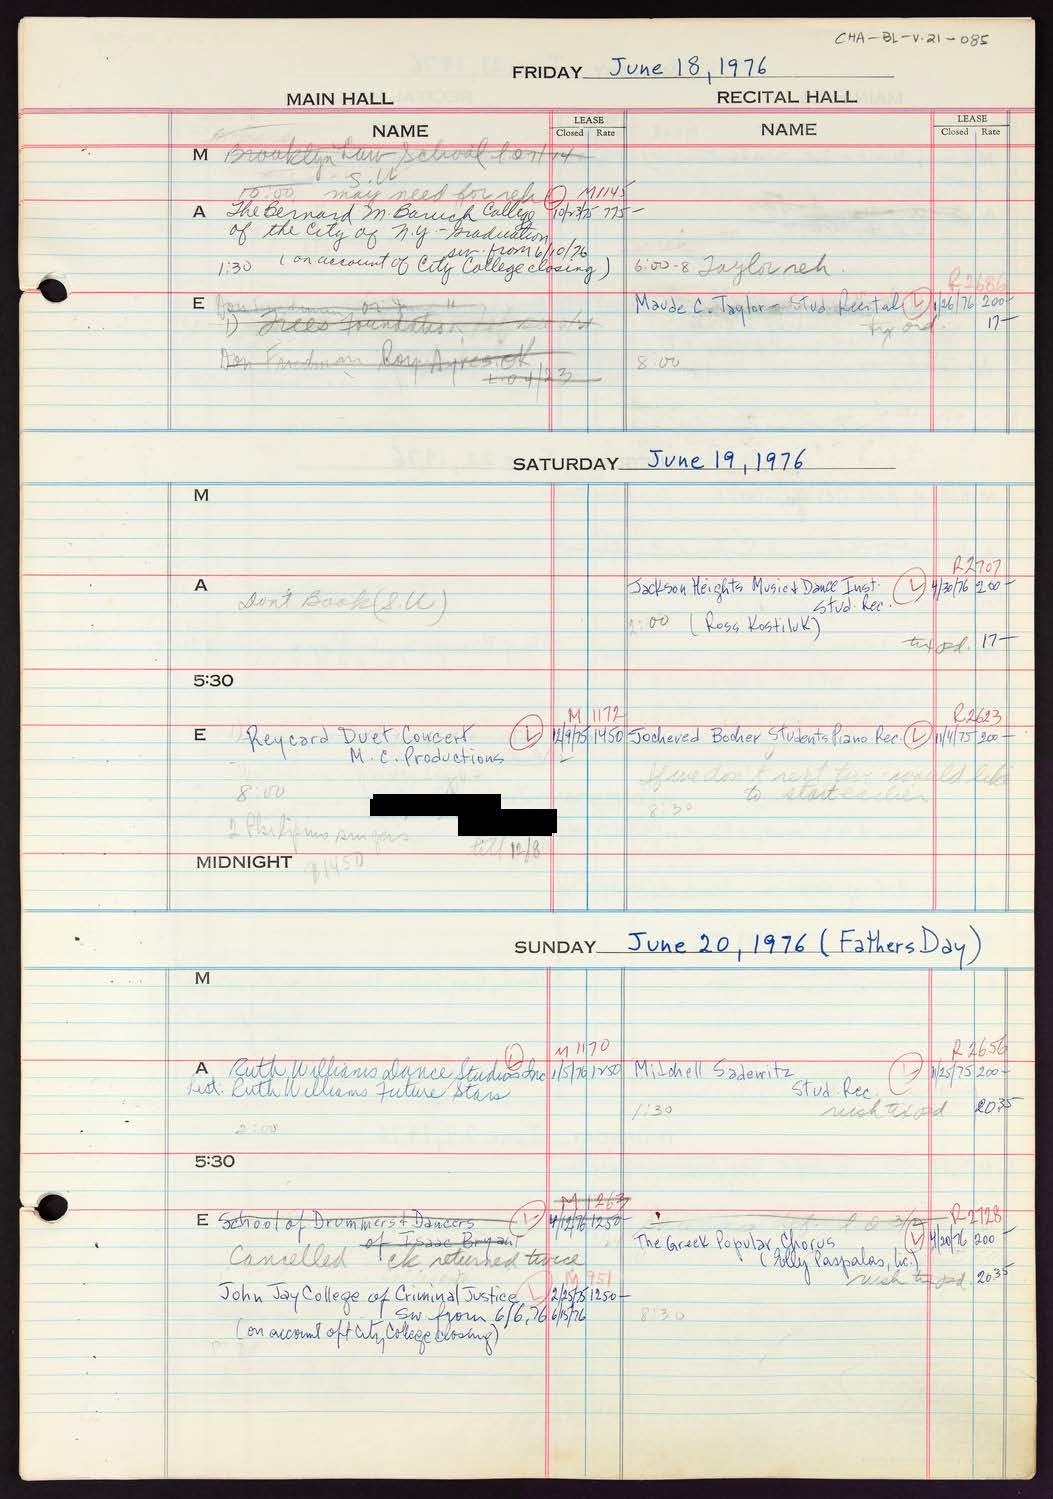 CHA-BL-V.21-085
FRIDAY June 18, 1976
MAIN HALL
RECITAL HALL
NAME
LEASE
Closed Rate
NAME
LEASE
Closed Rate
M Brooklyn Law School
S.U.
10:00 may need for reh L M1145
A The Bernard M. Baruch College 10/23/75 775-
of the City of N.Y. - Graduation
sw. from 6/10/76
1:30 (on account of City College closing)
6:00-8 Taylor reh.
R2686
E
1) Trees Foundation
Don Friedman Roy Ayres OK
to 4/23
Maude C. Taylor - Stud. Recital L 1/26/76 200-
tix ord. 17-
8:00
SATURDAY June 19, 1976
M
A
Don't Book (S.U)
R2707
Jackson Heights Music & Dance Inst. L 4/30/76 200-
Stud. Rec.
2:00 (Ross Kostiluk)
tix od. 17-
5:30
M 1172
E Reycard Duet Concert L 12/9/75 1450
M.C. Productions
8:00
2 Philipino singers
till 12/8
$1450
R2623
Jocheved Bocher Students Piano Rec. L 11/4/75 200-
If we don't rent five - would like
to start earlier
8:30
MIDNIGHT
SUNDAY June 20, 1976 (Fathers Day)
M
M 1170
A Ruth Williams Dance Studios Inc L 1/5/76 1250
List. Ruth Williams Future Stars
2:00
R2656
Mitchell Sadewitz L 11/25/75 200-
Stud. Rec.
1:30 rush tix od 2035
5:30
M 1263
E School of Drummers & Dancers L 4/12/76 1250-
of Isaac Bryant
Cancelled ck returned twice
M 951
John Jay College of Criminal Justice L 2/25/75 1250-
Sw from 6/6/76 6/15/76
(on account of City College closing)
R2728
The Greek Popular Chorus L 4/20/76 200-
(Polly Paspalas, lic.)
rush tix od. 2035
8:30